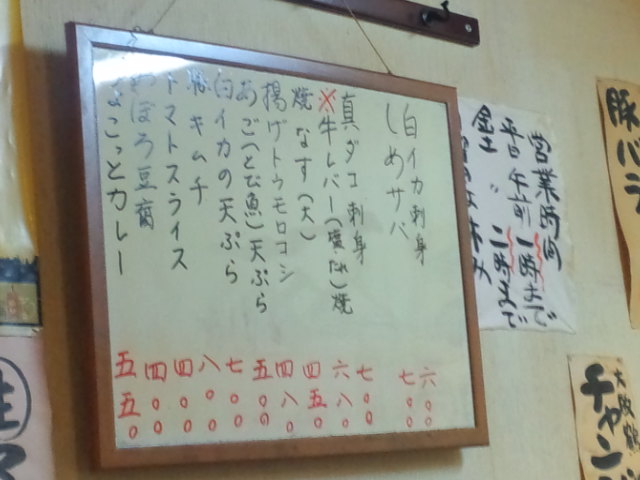 豚バラ
営業時間
平日午前一時まで
金土〃二時まで
休み
白イカ刺身 六〇〇
しめサバ 七〇〇
真ダコ刺身 七〇〇
※牛レバー(塩・たれ)焼 六八〇
焼なす(大) 四五〇
揚げトウモロコシ 四八〇
あご(とび魚)天ぷら 五〇〇
白イカの天ぷら 七〇〇
豚キムチ 八〇〇
トマトスライス 四〇〇
おぼろ豆腐 四〇〇
ちょこっとカレー 五五〇
大阪鶴
チャン
生